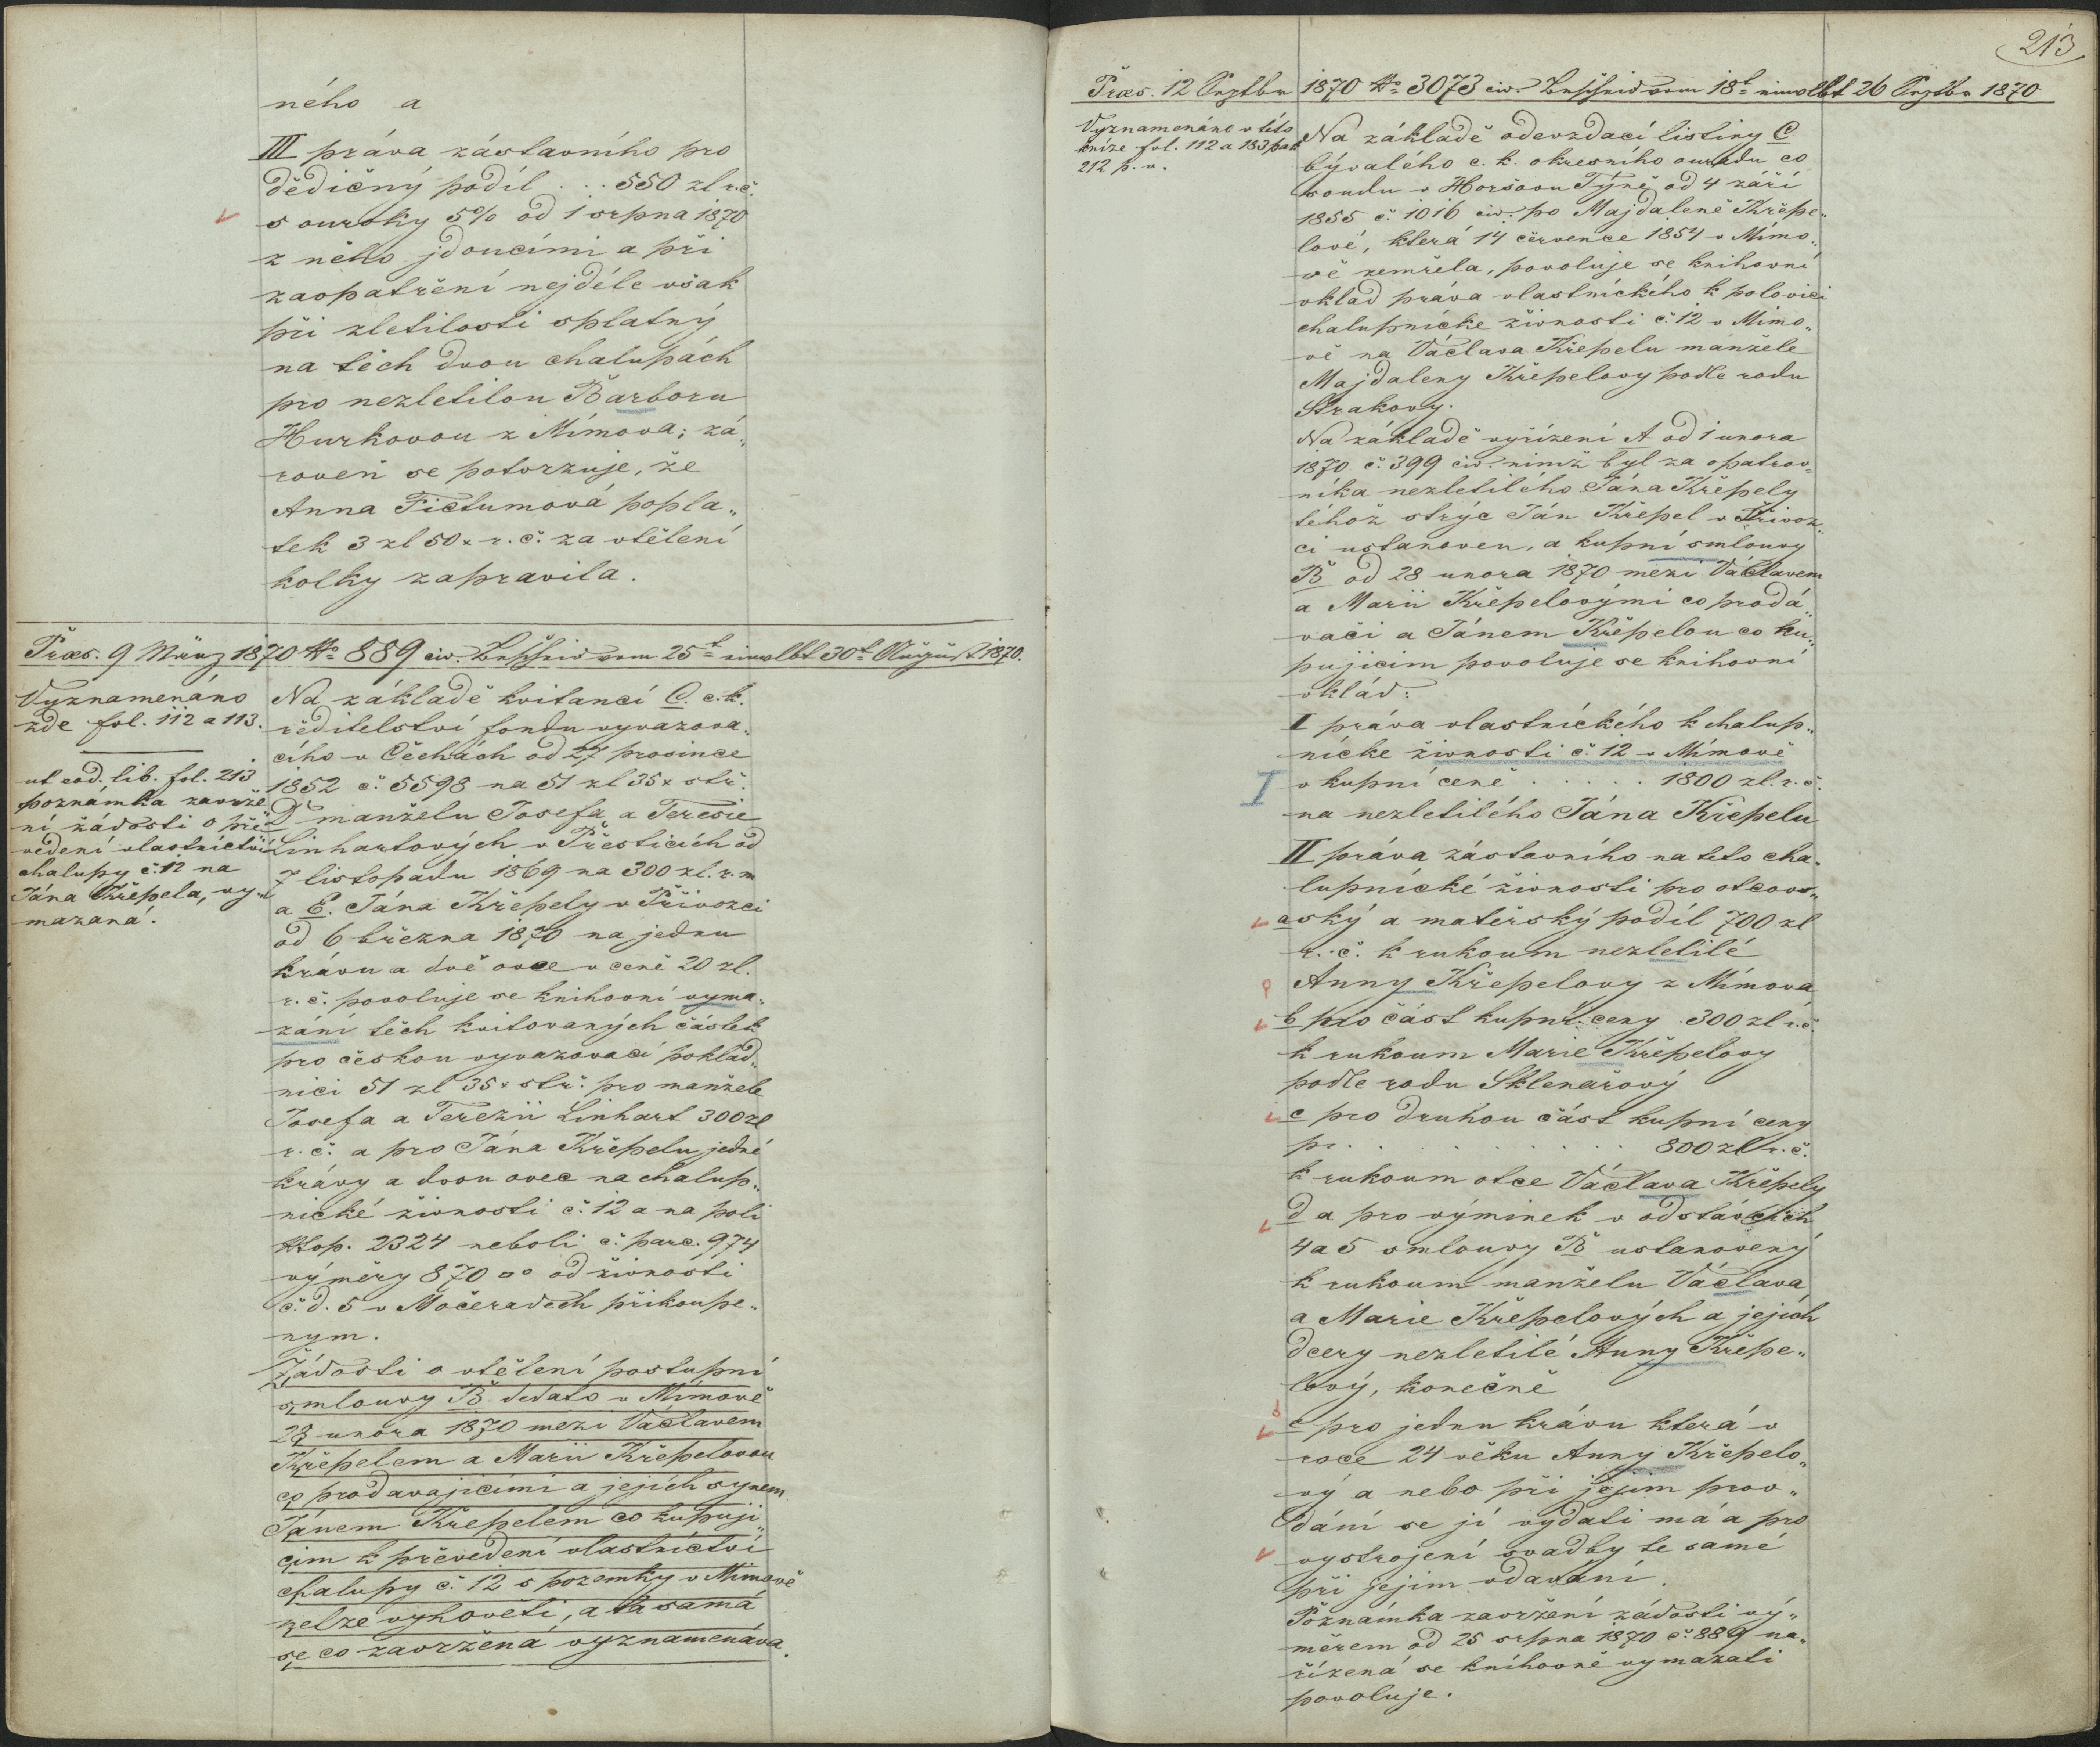 ného a
III práva zástavního pro
dědičný podíl . . . 550 zl r. č.
s ouroky 5% od 1 srpna 1870
z něho jdoucími a při
zaopatření nejdéle však
při zletilosti splatný
na těch dvou chalupách
pro nezletilou Barboru
Hurkovou z Mímova; zá„
roveň se potvrzuje, že
Anna Fictumová popla„
tek 3 zl 50 x r. č. za vtělení
kolky zapravila.
Præs. 9 März 1870 No 889 civ. Bescheid vom 25t einvlbt 30t August 1870.
Vyznamenáno
zde fol. 112 a 113.
ut eod. lib. fol. 213
poznámka zavrže
ní žádosti o pře
vedení vlastnictví
chalupy č. 12 na
Jána Křepela, vy„
mazaná.
Na základě kvitancí C. c. k.
ředitelství fondu vyvazova„
cího v Čechách od 27 prosince
1852 č. 5598 na 51 zl 35 x stř.
D manželu Josefa a Teresie
Linhartových v Přesticích od
7 listopadu 1869 na 300 zl. r. m
a E. Jána Křepely v Přívozci
od 6 března 1870 na jednu
krávu a dvě ovce v ceně 20 zl.
r. č. povoluje se knihovní vyma„
zání těch kvitovaných částek
pro českou vyvazovací poklad„
nici 51 zl 35 x stř. pro manžele
Josefa a Terezii Linhart 300 zl
r. č. a pro Jána Křepelu jedné
krávy a dvou ovec na chalup„
nické živnosti č. 12 a na poli
ktop. 2324 neboli č. parc. 974
výměry 870 □° od živnosti
č. d. 5 v Močeradech přikoupe„
nym.
Žádosti o vtělení postupní
smlouvy B dedato v Mímově
28 unora 1870 mezi Václavem
Křepelem a Marii Křepelovou
co prodavajicími a jejích synem
Jánem Křepelem co kupuji„
cim k převedení vlastnictví
chalupy č. 12 s pozemky v Mímově
nelze vyhověti, a ta samá
se co zavržená vyznamenáva.
213
Præs. 12 Septbr 1870 No 3073 civ. Bescheid vom 18t einvlbt 26 Septbr 1870
Vyznamenáno v této
knize fol. 112 a 183 pak
212 p. v.
Na základě odevzdací listiny C
bývalého c. k. okresního ouřadu co
soudu v Horšovu Týně od 4 září
1855 č. 1016 civ. po Majdaleně Křepe„
lové, která 14 července 1854 v Mímo„
vě zemřela, povoluje se knihovní
vklad práva vlastníckého k polovici
chalupnícke živnosti č. 12 v Mímo„
vě na Václava Křepelu manžele
Majdaleny Křepelovy podle rodu
Strakovy.
Na základě vyřízení A od 1 unora
1870 č. 399 civ. nimž byl za opatrov„
níka nezletilého Jána Křepely
téhož strýc Ján Křepel v Přívoz„
ci ustanoven, a kupní smlouvy
B od 28 unora 1870 mezi Václavem
a Marii Křepelovými co prodá„
vači a Jánem Křepelou co ku„
pujicim povoluje se knihovní
vklád:
I práva vlastníckého k chalup„
nícke živnosti č. 12 v Mímově
v kupní ceně . . . . . 1800 zl. r. č.
na nezletilého Jána Křepelu
II práva zástavního na teto cha„
lupnícké živnosti pro otcovs„
a ský a mateřský podíl 700 zl
r. č. k rukoum nezletilé
Anny Křepelovy z Mímova
b pro část kupní ceny 300 zl r. č.
k rukoum Marie Křepelovy
podle rodu Sklenařový
c pro druhou část kupní ceny
pr. . . . . . . . . 800 zl r. č.
k rukoum otce Václava Křepely
d a pro výminek v odstávcích
4 a 5 smlouvy B ustanovený
k rukoum manželu Václava
a Marie Křepelových a jejich
dcery nezletilé Anny Křepe„
lový, konečně
e pro jednu krávu která v
roce 24 věku Anny Křepelo„
vý a nebo při jejím prov„
dání se jí vydati má a pro
vystrojení svadby te samé
při jejim vdavání.
Poznámka zavržení žádosti vý„
měrem od 25 srpna 1870 č. 889 na„
řízená se knihovně vymázati
povoluje.